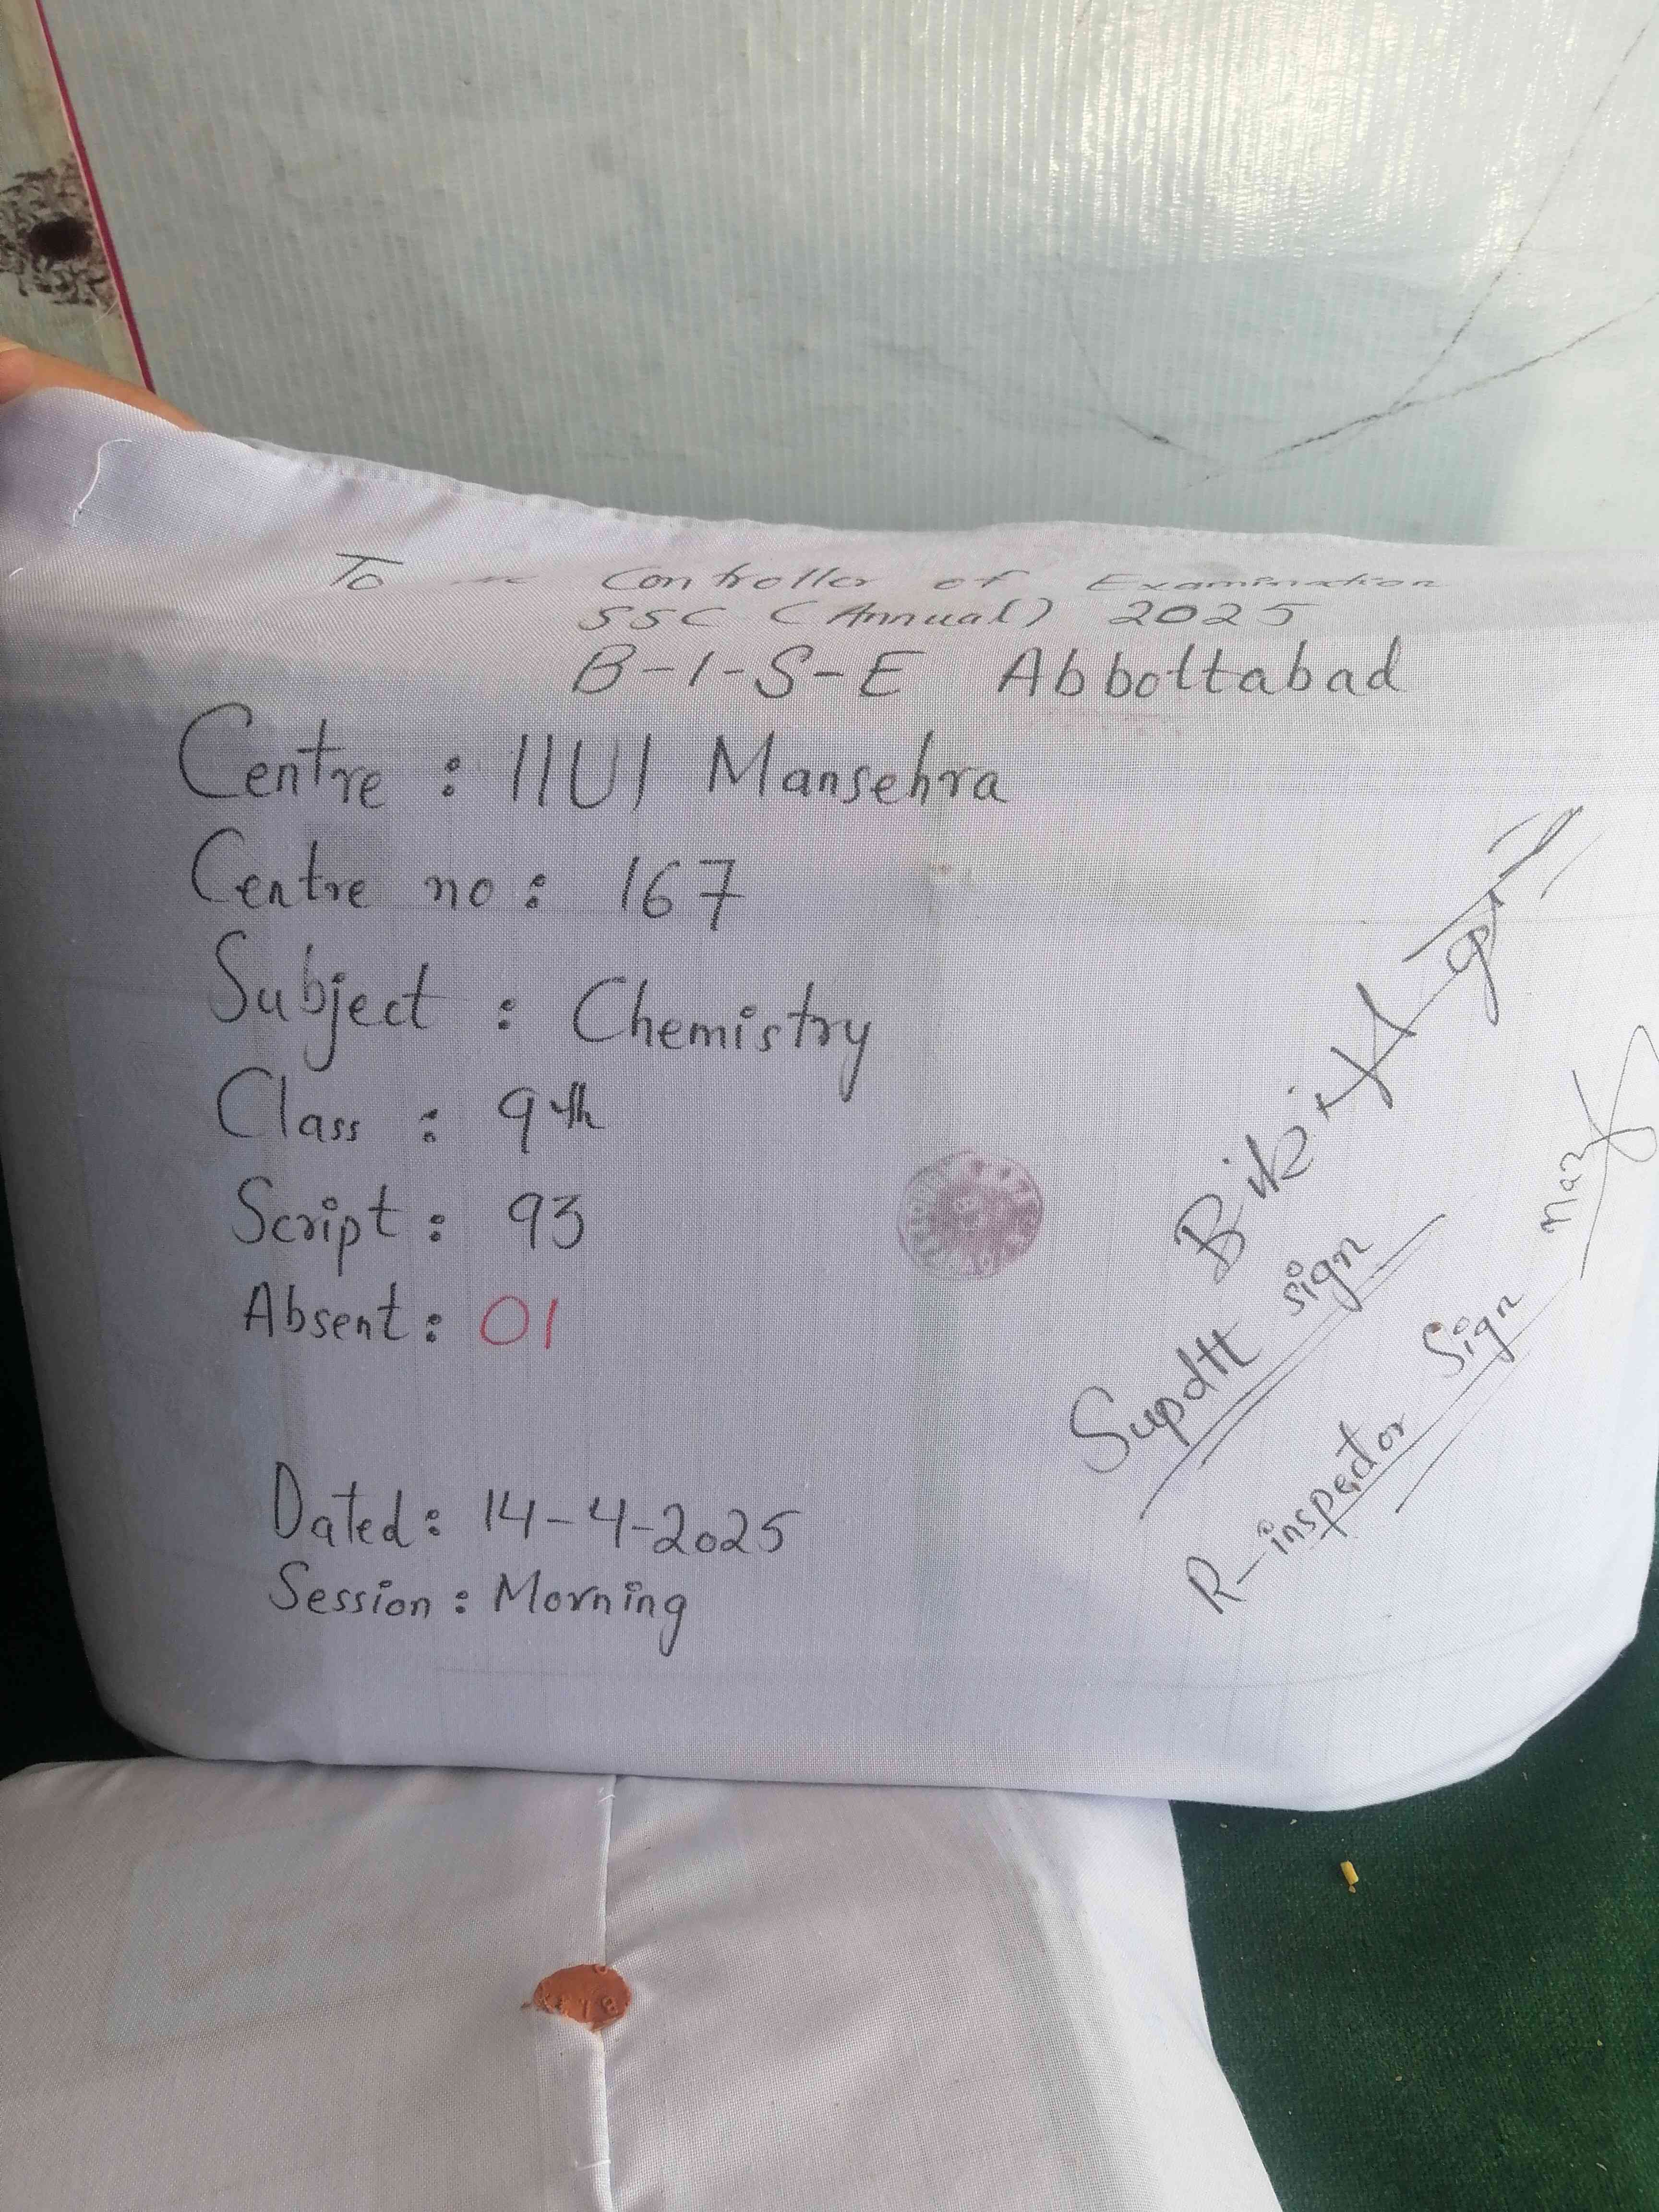 To the Controller of Examination
SSC (Annual) 2025
B-I-S-E Abbottabad
Centre : IIUI Mansehra
Centre no : 167
Subject : Chemistry
Class : 9th
Script : 93
Absent : 01
Dated : 14-4-2025
Session : Morning
Supdtt sign
R-inspector Sign